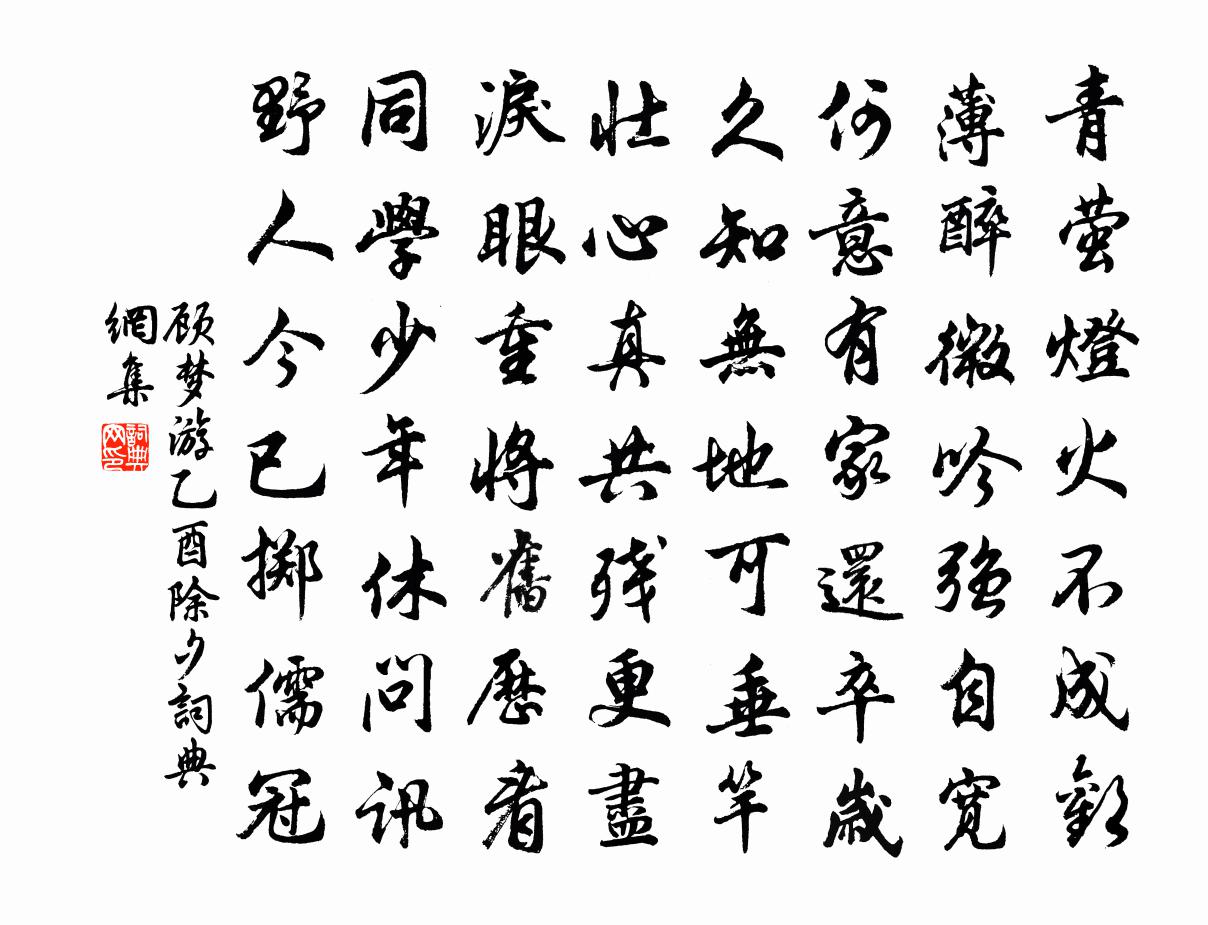 青萤燈火不成歡
薄醉微吟強自寬
何意有家還卒歲
久知無地可垂竿
壮心真共残更盡
淚眼重將舊歷看
同學少年休問訊
野人今已擲儒冠
顾梦游乙酉除夕詞典
網集
詞典网印